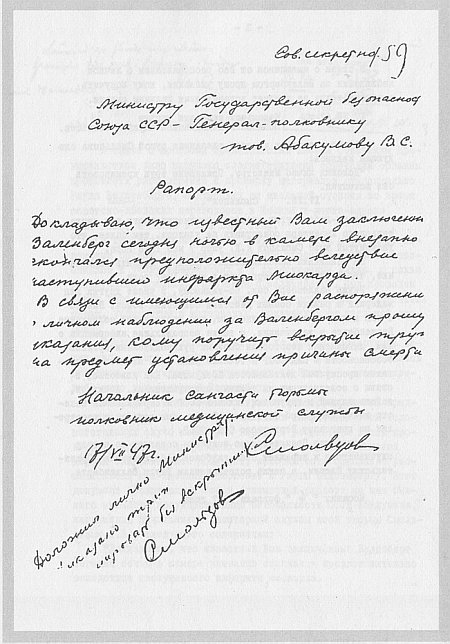 Сов. секретно. 59
Министру Государственной безопаснос
Союза ССР – Генерал-полковнику
тов. Абакумову В.С.
Рапорт.
Докладываю, что известный Вам заключенн
Валенберг сегодня ночью в камере внезапно
скончался предположительно вследствие
наступившего инфаркта миокарда.
В связи с имеющимся от Вас распоряжени
о личном наблюдении за Валенбергом прошу
указания, кому поручить вскрытие труп
на предмет установления причины смерти
Начальник санчасти тюрьмы
полковник медицинской службы
Смольцов
17/VII 47г.
Доложил лично Министру.
Приказано труп
кремировать без вскрытия
Смольцов